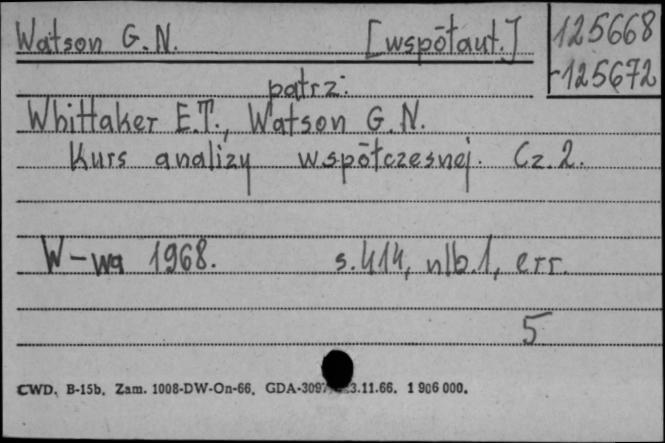 Watson G.N. [współaut.] 125668
-125672
patrz:
Whittaker E.T., Watson G.N.
Kurs analizy współczesnej. Cz. 2.
W-wa 1968. s. 414, nlb. 1, err.
5
CWD. B-15b. Zam. 1008-DW-On-66. GDA-3097 3.11.66. 1 906 000.